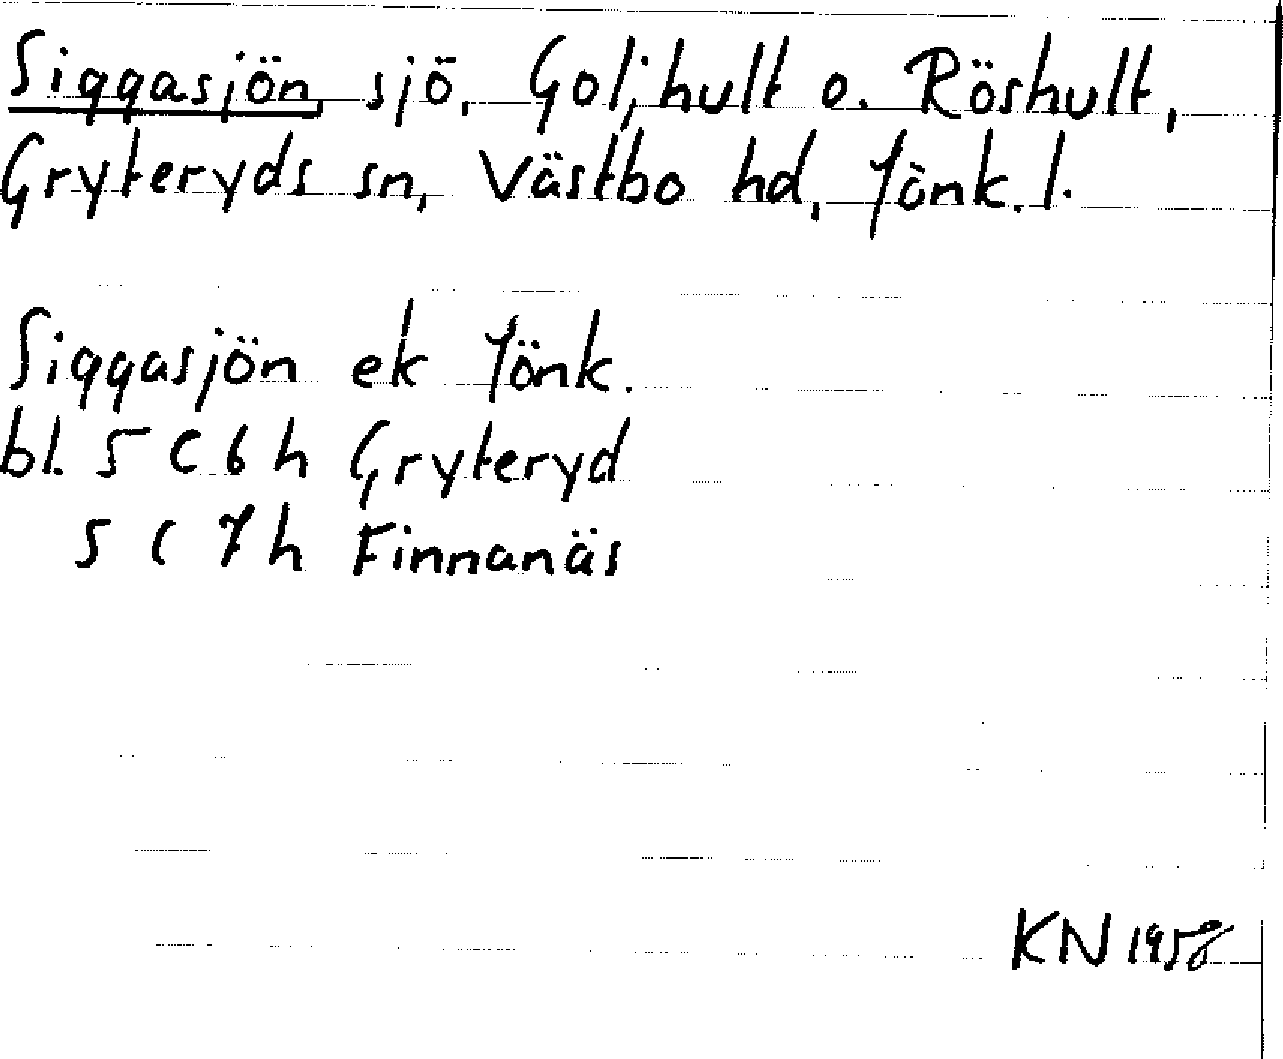 Siggasjön, sjö, Goljhult o. Röshult,
Gryteryds sn, Västbo hd, Jönk. l.
Siggasjön ek Jönk.
bl. 5 C 6 h Gryteryd
5 C 7 h Finnanäs
KN 1958